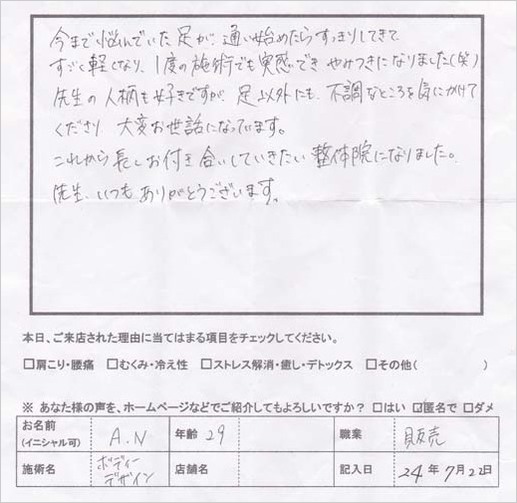 今まで悩んでいた足が、通い始めたらすっきりしてきて
すごく軽くなり、1度の施術でも実感でき やみつきになりました(笑)
先生の人柄も好きですが、足以外にも、不調なところを気にかけて
くださり 大変お世話になっています。
これから長くお付き合いしていきたい 整体院になりました。
先生、いつも ありがとうございます。
本日、ご来店された理由に当てはまる項目をチェックしてください。
□肩こり・腰痛 □むくみ・冷え性 □ストレス解消・癒し・デトックス □その他( )
※ あなた様の声を、ホームページなどでご紹介してもよろしいですか? □はい ☑匿名で □ダメ
お名前 (イニシャル可) A.N 年齢 29 職業 販売
施術名 ボディーデザイン 店舗名 記入日 24年7月22日